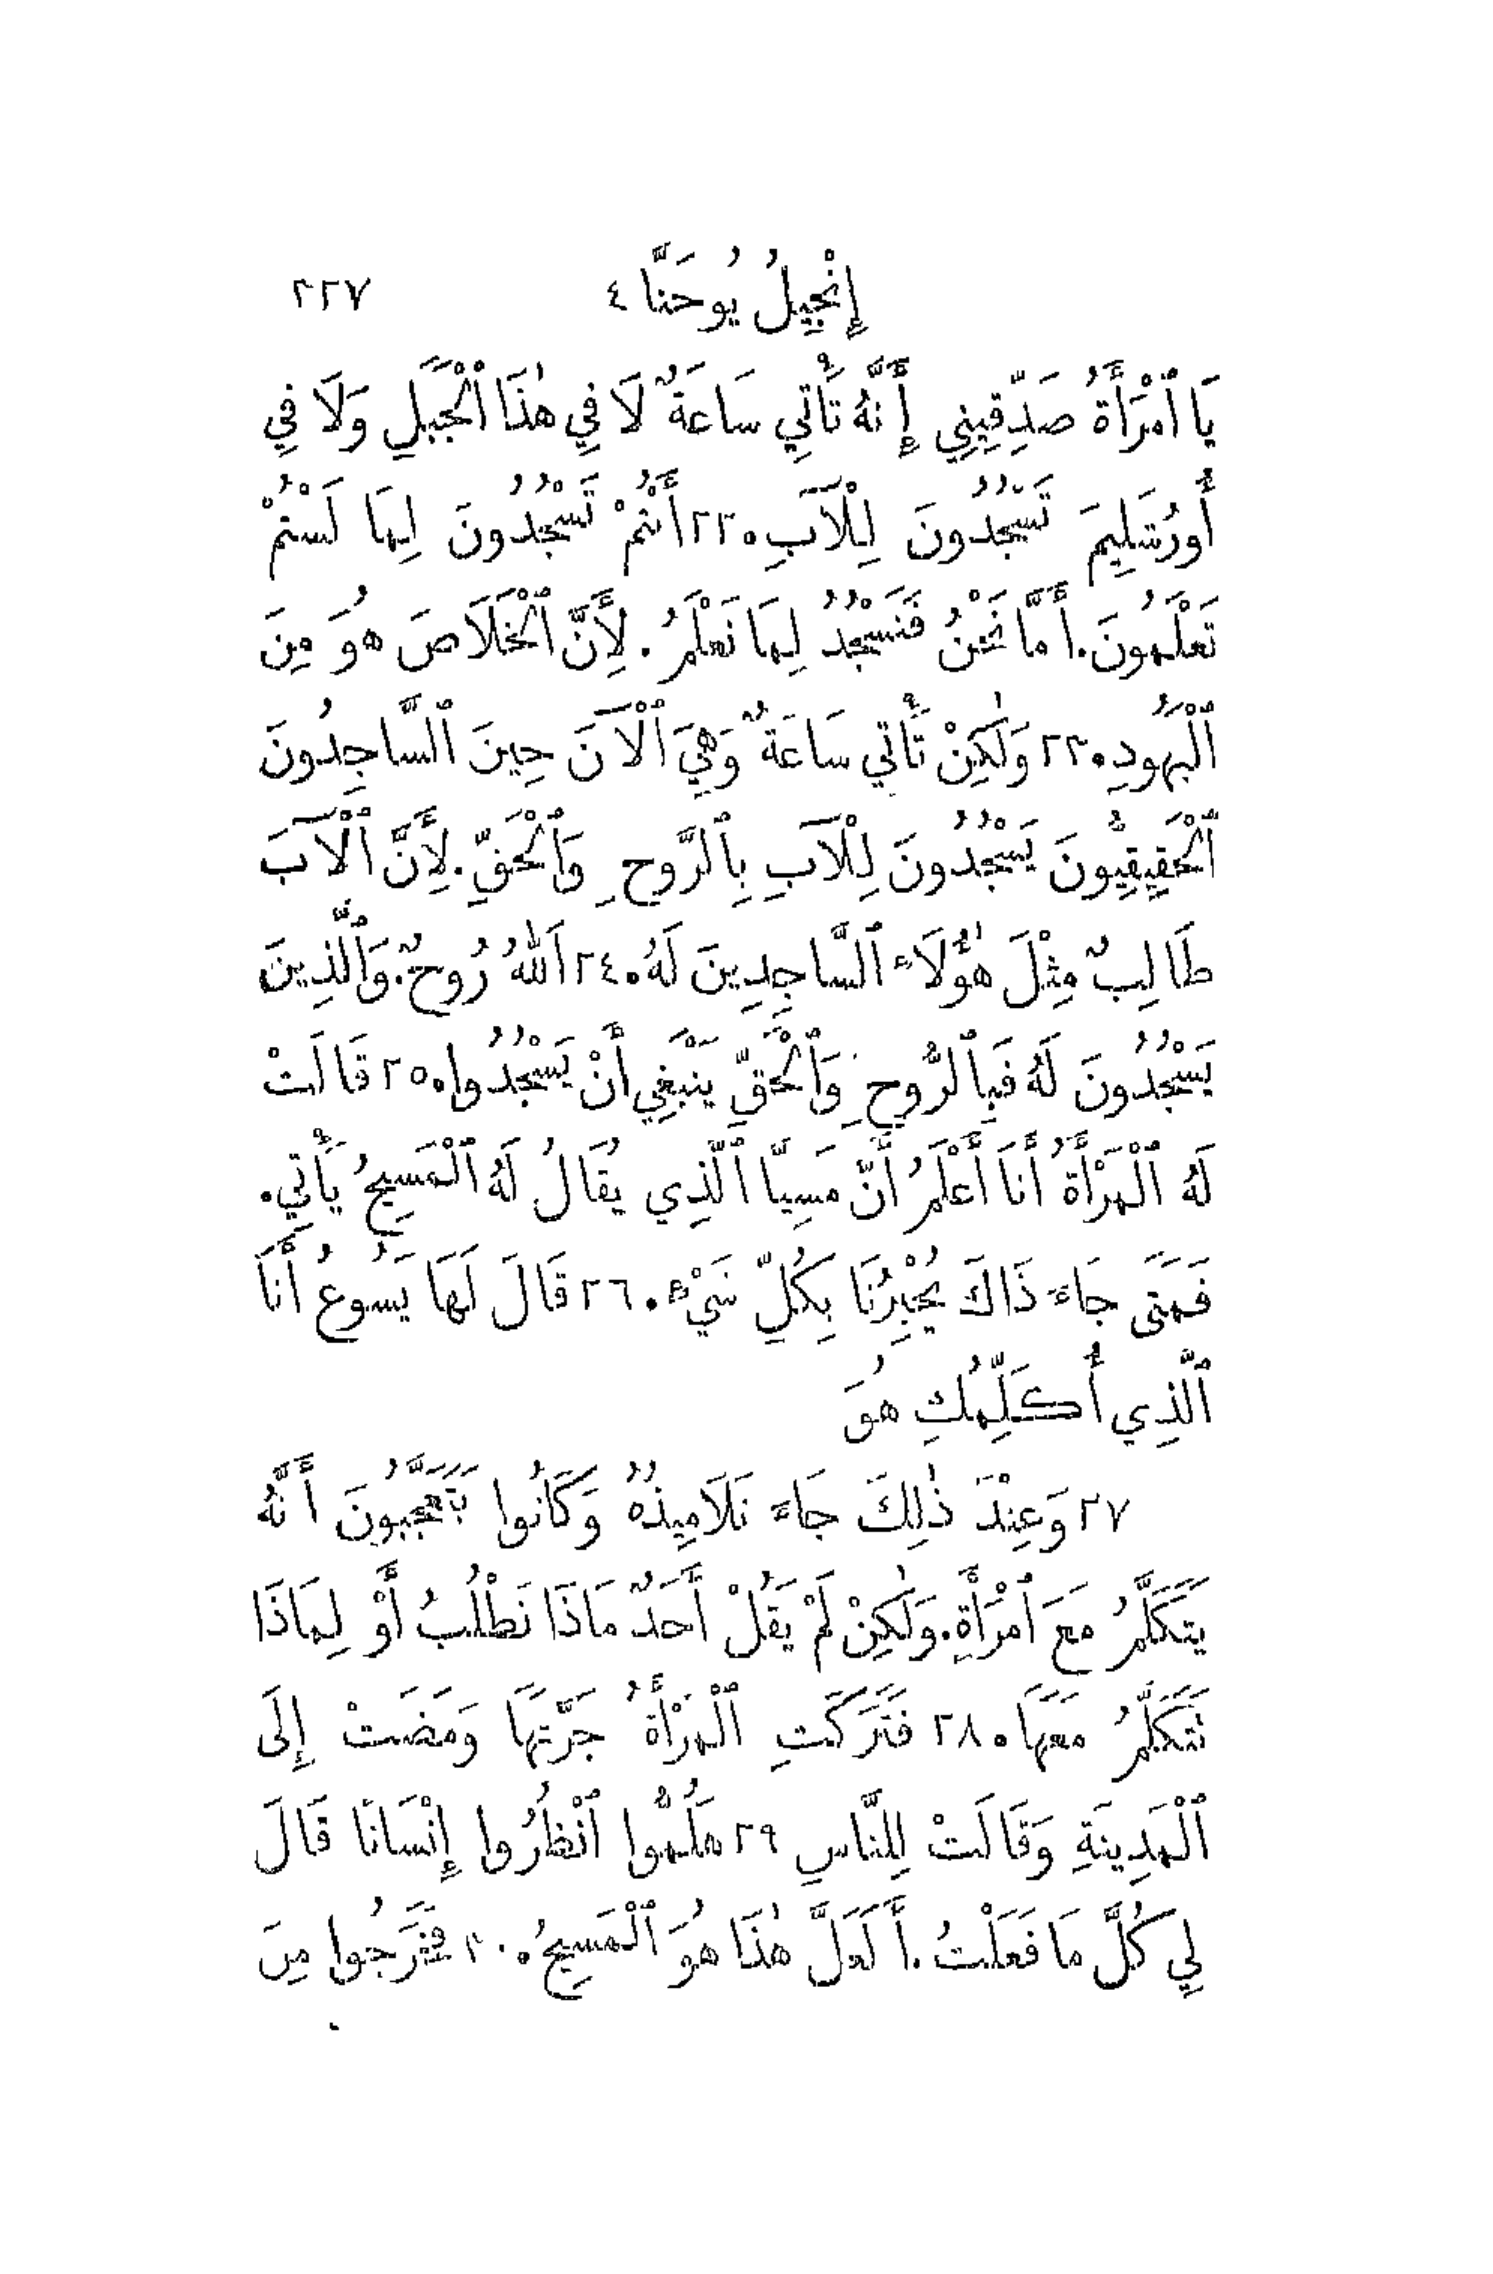 إِنْجِيلُ يُوحَنَّا ٤ ٢٢٧
يَا ٱمْرَأَةُ صَدِّقِينِي إِنَّهُ تَأْتِي سَاعَةٌ لَا فِي هٰذَا ٱلْجَبَلِ وَلَا فِي
أُورُشَلِيمَ تَسْجُدُونَ لِلْآبِ٠ ٢٢ أَنْتُمْ تَسْجُدُونَ لِمَا لَسْتُمْ
تَعْلَمُونَ. أَمَّا نَحْنُ فَنَسْجُدُ لِمَا نَعْلَمُ. لِأَنَّ ٱلْخَلَاصَ هُوَ مِنَ
ٱلْيَهُودِ٠ ٢٣ وَلٰكِنْ تَأْتِي سَاعَةٌ وَهِيَ ٱلْآنَ حِينَ ٱلسَّاجِدُونَ
ٱلْحَقِيقِيُّونَ يَسْجُدُونَ لِلْآبِ بِٱلرُّوحِ وَٱلْحَقِّ. لِأَنَّ ٱلْآبَ
طَالِبٌ مِثْلَ هٰؤُلَاءِ ٱلسَّاجِدِينَ لَهُ٠ ٢٤ اَللهُ رُوحٌ. وَٱلَّذِينَ
يَسْجُدُونَ لَهُ فَبِٱلرُّوحِ وَٱلْحَقِّ يَنْبَغِي أَنْ يَسْجُدُوا٠ ٢٥ قَالَتْ
لَهُ ٱلْمَرْأَةُ أَنَا أَعْلَمُ أَنَّ مَسِيَّا ٱلَّذِي يُقَالُ لَهُ ٱلْمَسِيحُ يَأْتِي.
فَمَتَى جَاءَ ذَاكَ يُخْبِرُنَا بِكُلِّ شَيْءٍ٠ ٢٦ قَالَ لَهَا يَسُوعُ أَنَا
ٱلَّذِي أُكَلِّمُكِ هُوَ
٢٧ وَعِنْدَ ذٰلِكَ جَاءَ تَلَامِيذُهُ وَكَانُوا يَتَعَجَّبُونَ أَنَّهُ
يَتَكَلَّمُ مَعَ ٱمْرَأَةٍ. وَلٰكِنْ لَمْ يَقُلْ أَحَدٌ مَاذَا تَطْلُبُ أَوْ لِمَاذَا
تَتَكَلَّمُ مَعَهَا٠ ٢٨ فَتَرَكَتِ ٱلْمَرْأَةُ جَرَّتَهَا وَمَضَتْ إِلَى
ٱلْمَدِينَةِ وَقَالَتْ لِلنَّاسِ ٢٩ هَلُمُّوا ٱنْظُرُوا إِنْسَانًا قَالَ
لِي كُلَّ مَا فَعَلْتُ. أَلَعَلَّ هٰذَا هُوَ ٱلْمَسِيحُ٠ ٣٠ فَخَرَجُوا مِنَ